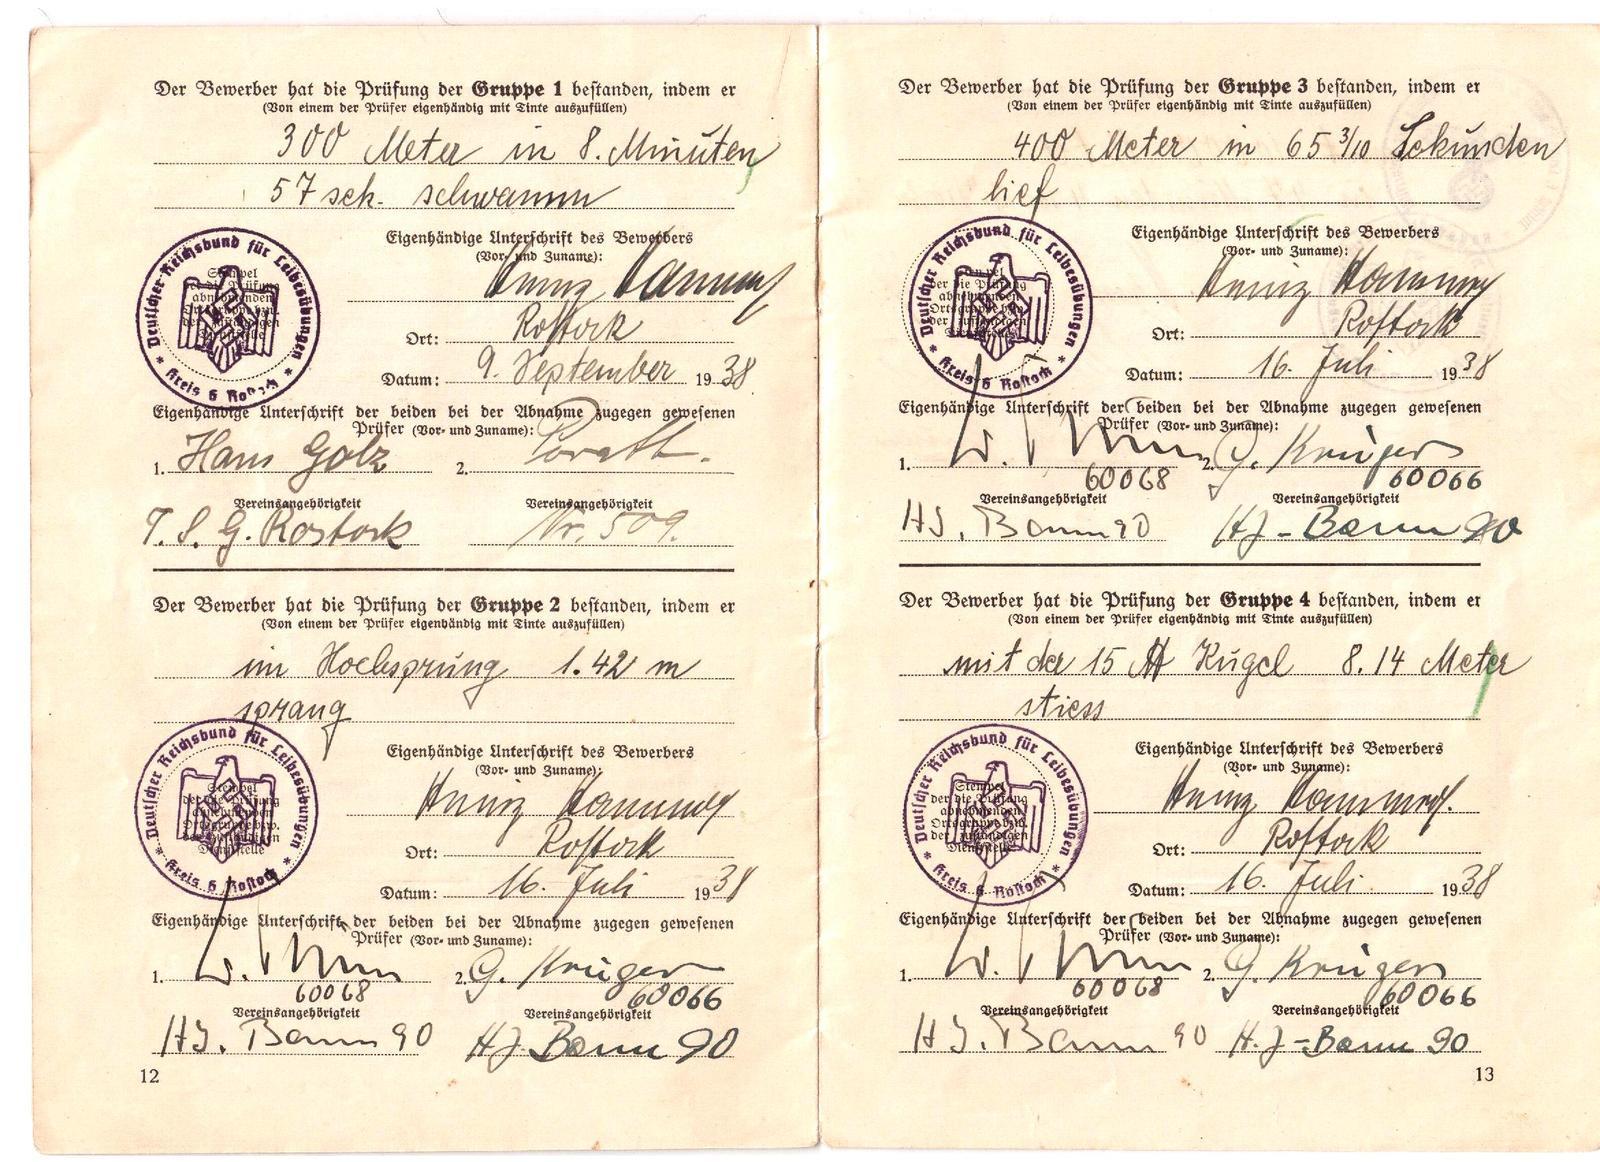 Der Bewerber hat die Prüfung der Gruppe 1 bestanden, indem er
(Von einem der Prüfer eigenhändig mit Tinte auszufüllen)
300 Meter in 8. Minuten
57 sek. schwamm
Deutscher Reichsbund für Leibesübungen
* Kreis 6 Rostock *
Stempel
der die Prüfung
abnehmenden
Ortsgruppe bzw.
der zuständigen
Eigenhändige Unterschrift des Bewerbers
(Vor- und Zuname):
Heinz
Ort: Rostock
Datum: 9. September 1938
Eigenhändige Unterschrift der beiden bei der Abnahme zugegen gewesenen
Prüfer (Vor- und Zuname):
1. Hans Golz 2.
Vereinsangehörigkeit Vereinsangehörigkeit
T. S. G. Rostock Nr. 509.
Der Bewerber hat die Prüfung der Gruppe 2 bestanden, indem er
(Von einem der Prüfer eigenhändig mit Tinte auszufüllen)
im Hochsprung 1.42 m
sprang
Deutscher Reichsbund für Leibesübungen
* Kreis 6 Rostock *
Stempel
der die Prüfung
abnehmenden
Ortsgruppe bzw.
der zuständigen
Dienststelle
Eigenhändige Unterschrift des Bewerbers
(Vor- und Zuname):
Heinz
Ort: Rostock
Datum: 16. Juli 1938
Eigenhändige Unterschrift der beiden bei der Abnahme zugegen gewesenen
Prüfer (Vor- und Zuname):
1. 2. G. Krüger
60068 60066
Vereinsangehörigkeit Vereinsangehörigkeit
HJ. Bann 90 HJ. Bann 90
12
Der Bewerber hat die Prüfung der Gruppe 3 bestanden, indem er
(Von einem der Prüfer eigenhändig mit Tinte auszufüllen)
400 Meter in 65 3/10 Sekunden
lief
Deutscher Reichsbund für Leibesübungen
* Kreis 6 Rostock *
Stempel
der die Prüfung
abnehmenden
Ortsgruppe bzw.
der zuständigen
Eigenhändige Unterschrift des Bewerbers
(Vor- und Zuname):
Heinz
Ort: Rostock
Datum: 16. Juli 1938
Eigenhändige Unterschrift der beiden bei der Abnahme zugegen gewesenen
Prüfer (Vor- und Zuname):
1. 2. G. Krüger
60068 60066
Vereinsangehörigkeit Vereinsangehörigkeit
HJ. Bann 90 HJ-Bann 90
Der Bewerber hat die Prüfung der Gruppe 4 bestanden, indem er
(Von einem der Prüfer eigenhändig mit Tinte auszufüllen)
mit der 15 ℔ Kugel 8.14 Meter
stiess
Deutscher Reichsbund für Leibesübungen
* Kreis 6 Rostock *
Stempel
der die Prüfung
abnehmenden
Ortsgruppe bzw.
der zuständigen
Dienststelle
Eigenhändige Unterschrift des Bewerbers
(Vor- und Zuname):
Heinz
Ort: Rostock
Datum: 16. Juli 1938
Eigenhändige Unterschrift der beiden bei der Abnahme zugegen gewesenen
Prüfer (Vor- und Zuname):
1. 2. G. Krüger
60068 60066
Vereinsangehörigkeit Vereinsangehörigkeit
HJ. Bann 90 H.J-Bann 90
13